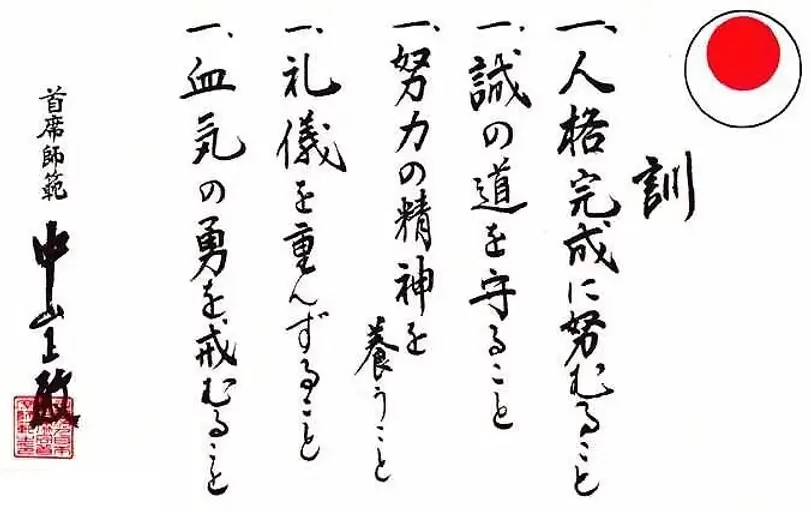 訓
一、人格完成に努むること
一、誠の道を守ること
一、努力の精神を
養うこと
一、礼儀を重んずること
一、血気の勇を戒むること
首席師範 中山正敏